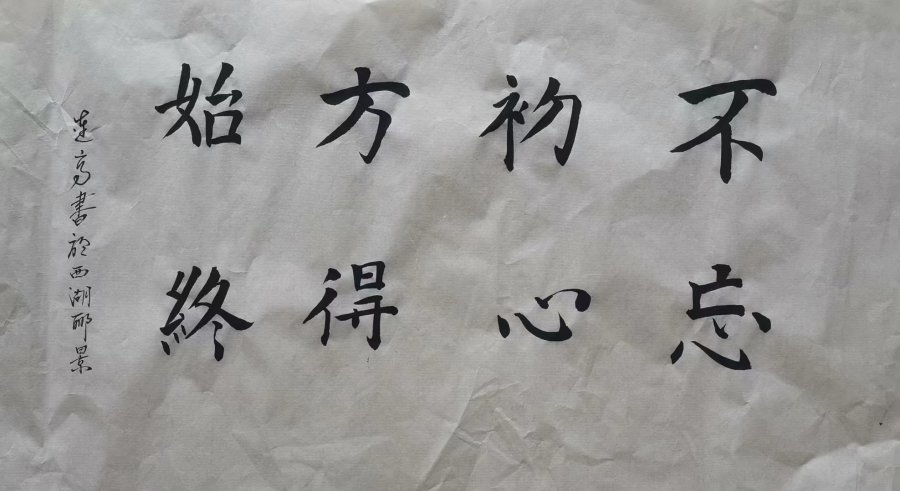 不忘
初心
方得
始終
連高書於西湖郦景